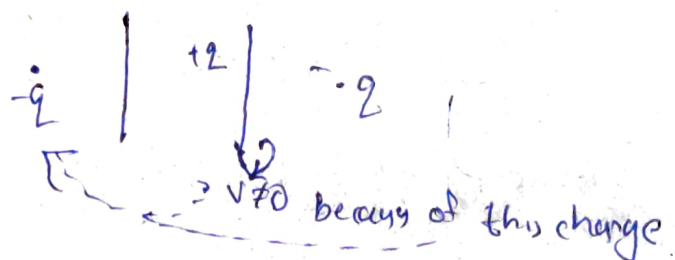 +q
-q
- . q
? V≠0 because of this charge